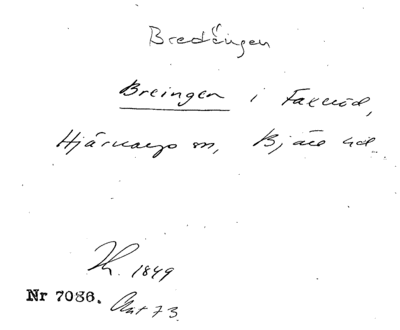 Bredängen
Breingen i Faxeröd,
Hjärnarps sn, Bjäre hd
Th. 1849
Nr 7086. Akt 73